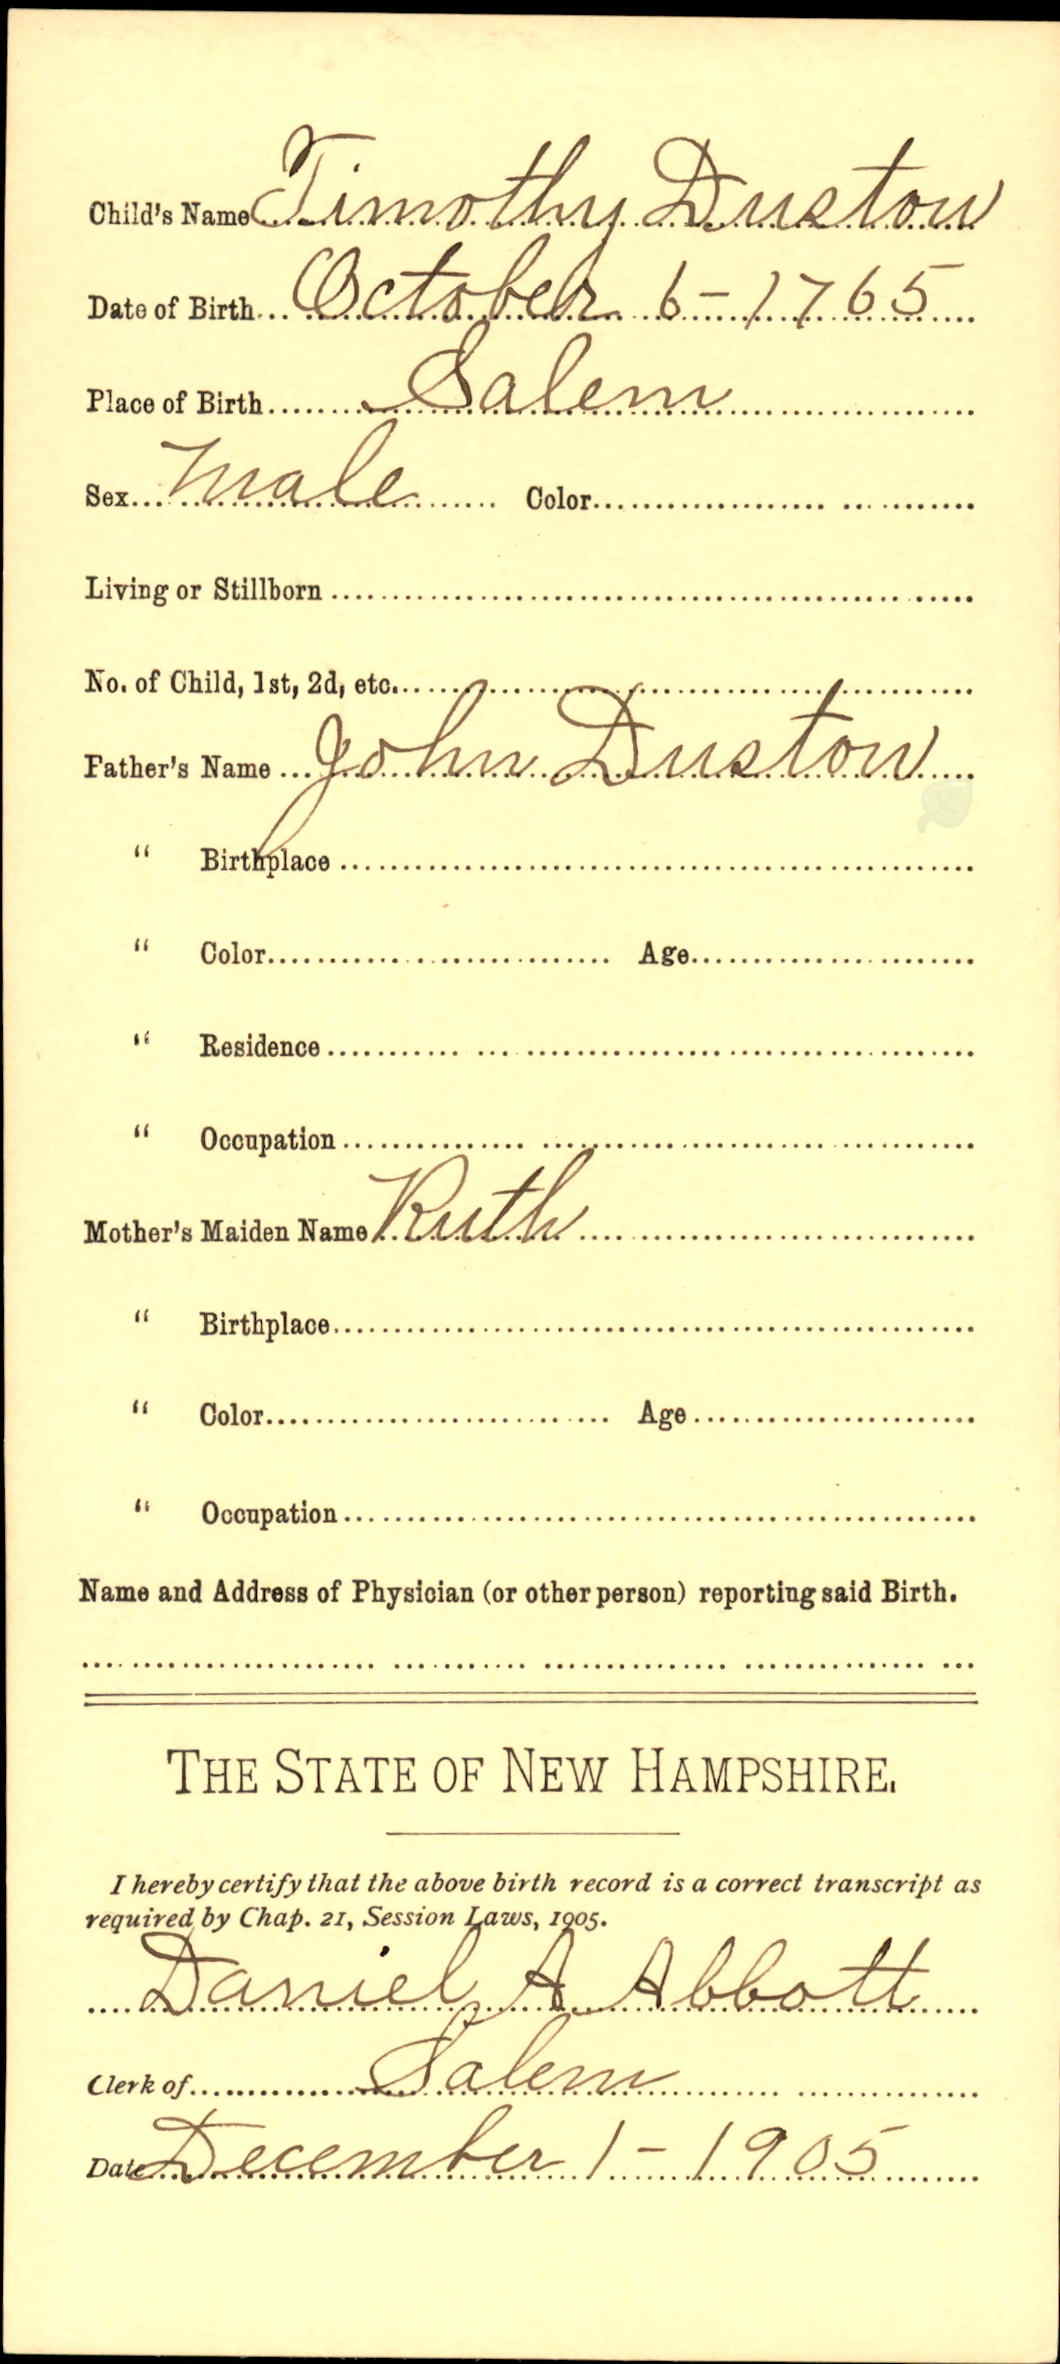 Child's Name Timothy Duston
Date of Birth October 6 - 1765
Place of Birth Salem
Sex Male Color
Living or Stillborn
No. of Child, 1st, 2d, etc.
Father's Name John Duston
" Birthplace
" Color Age
" Residence
" Occupation
Mother's Maiden Name Ruth
" Birthplace
" Color Age
" Occupation
Name and Address of Physician (or other person) reporting said Birth.
THE STATE OF NEW HAMPSHIRE.
I hereby certify that the above birth record is a correct transcript as
required by Chap. 21, Session Laws, 1905.
Daniel A Abbott
Clerk of Salem
Date December 1 - 1905